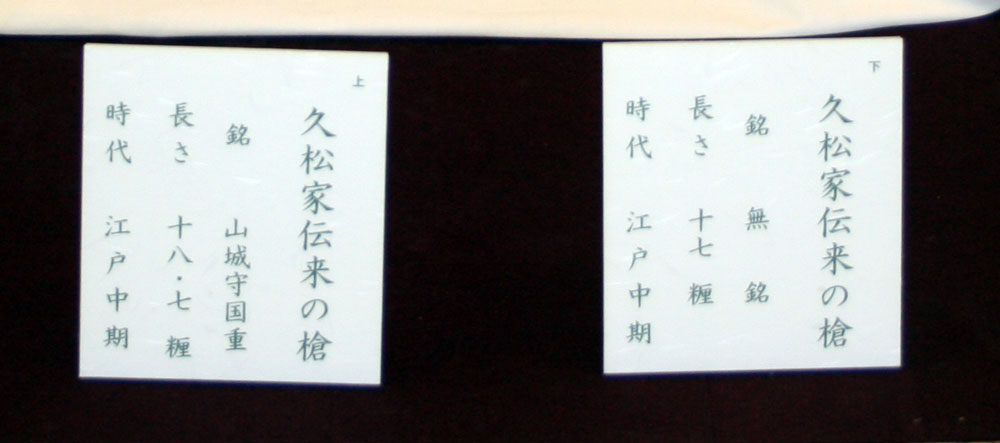 上
久松家伝来の槍
銘 山城守国重
長さ 十八・七 糎
時代 江戸中期
下
久松家伝来の槍
銘 無銘
長さ 十七 糎
時代 江戸中期